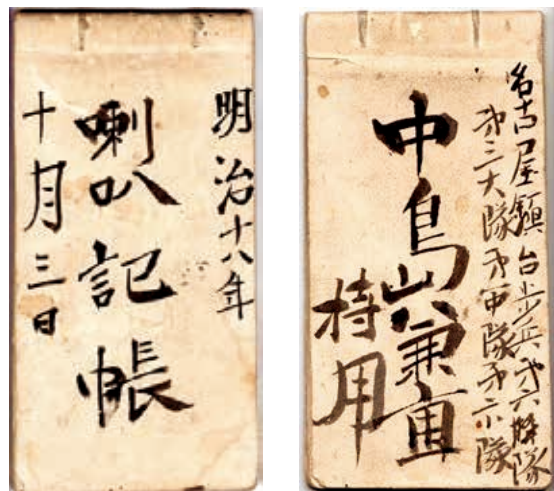 明治十八年
喇叭記帳
十月三日
名古屋鎮台歩兵第六聯隊
第三大隊第中隊第二小隊
中島兼重
持用